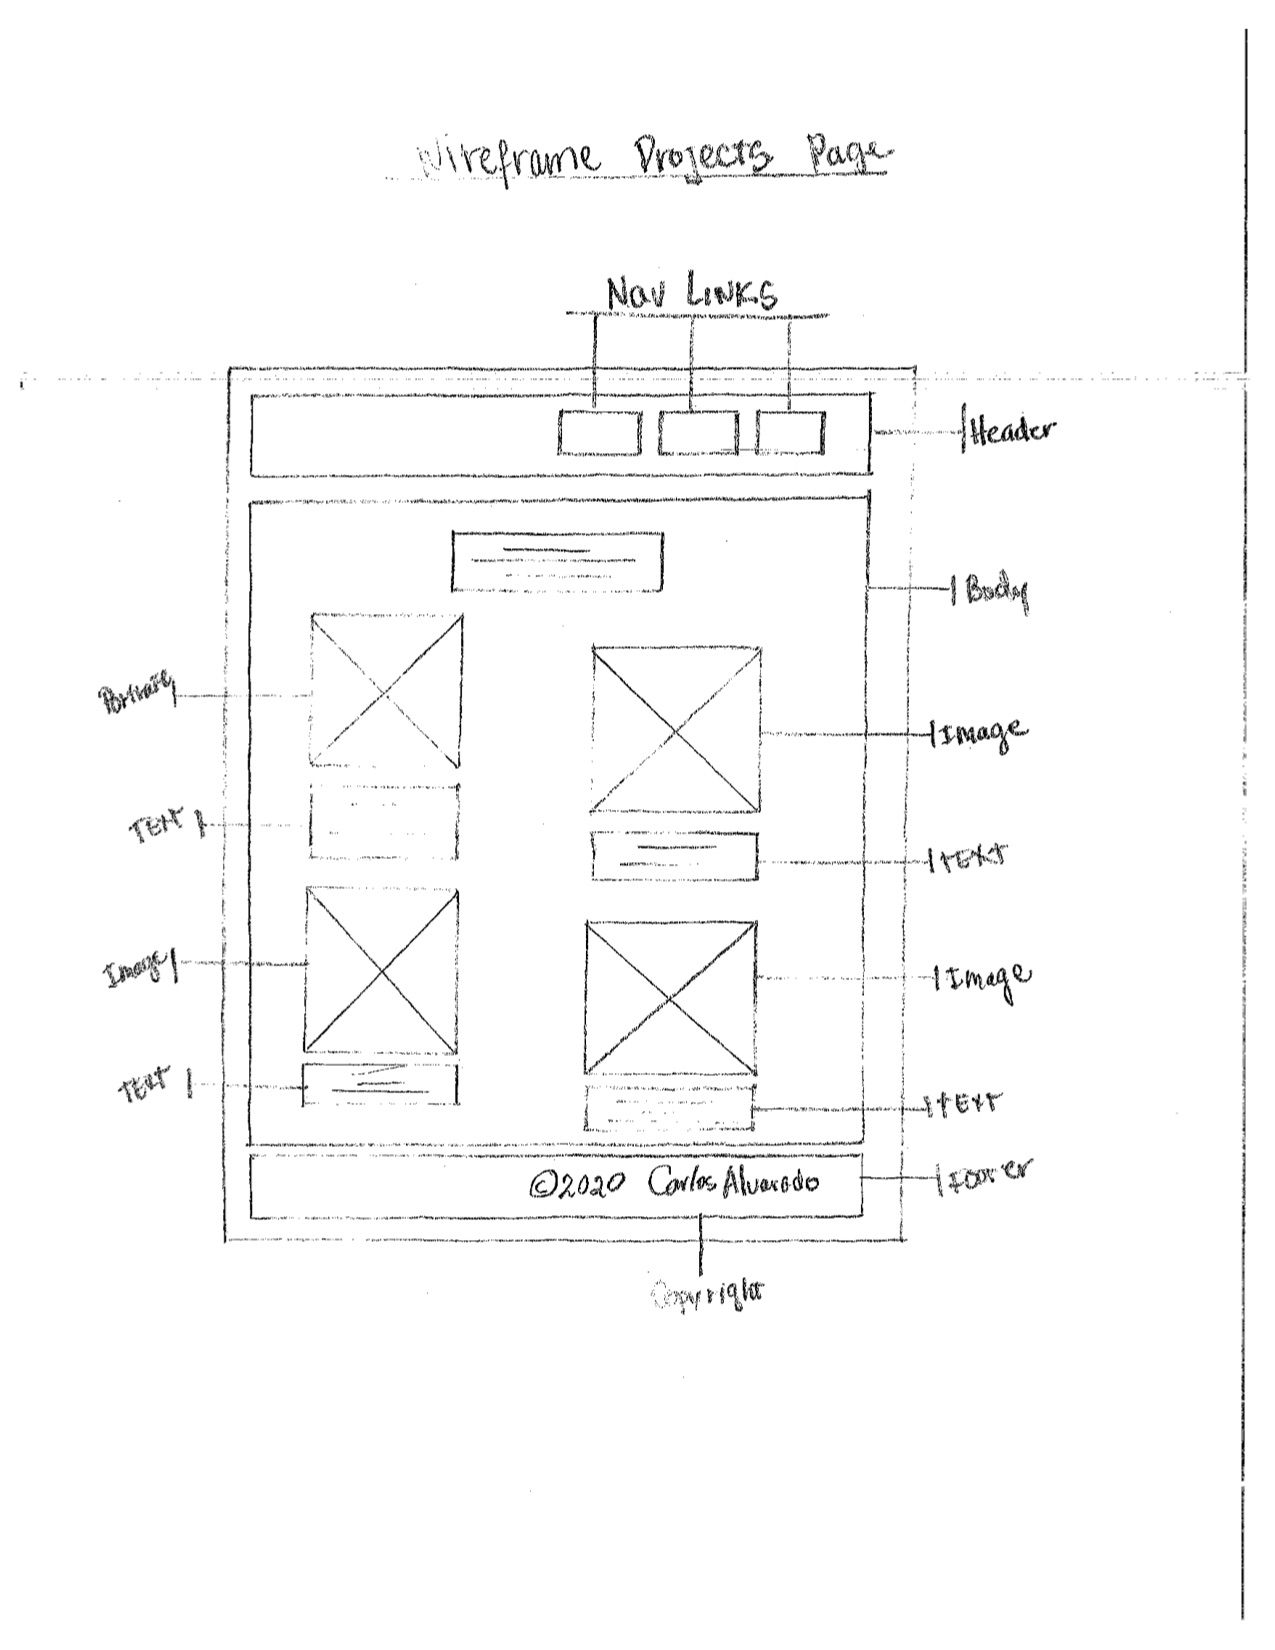 Wireframe Projects Page
Nav LINKS
Header
Body
Image
TEXT
tEXT
Image
Image
TEXT
tEXT
©2020 Carlos Alvarado
Footer
Copyright